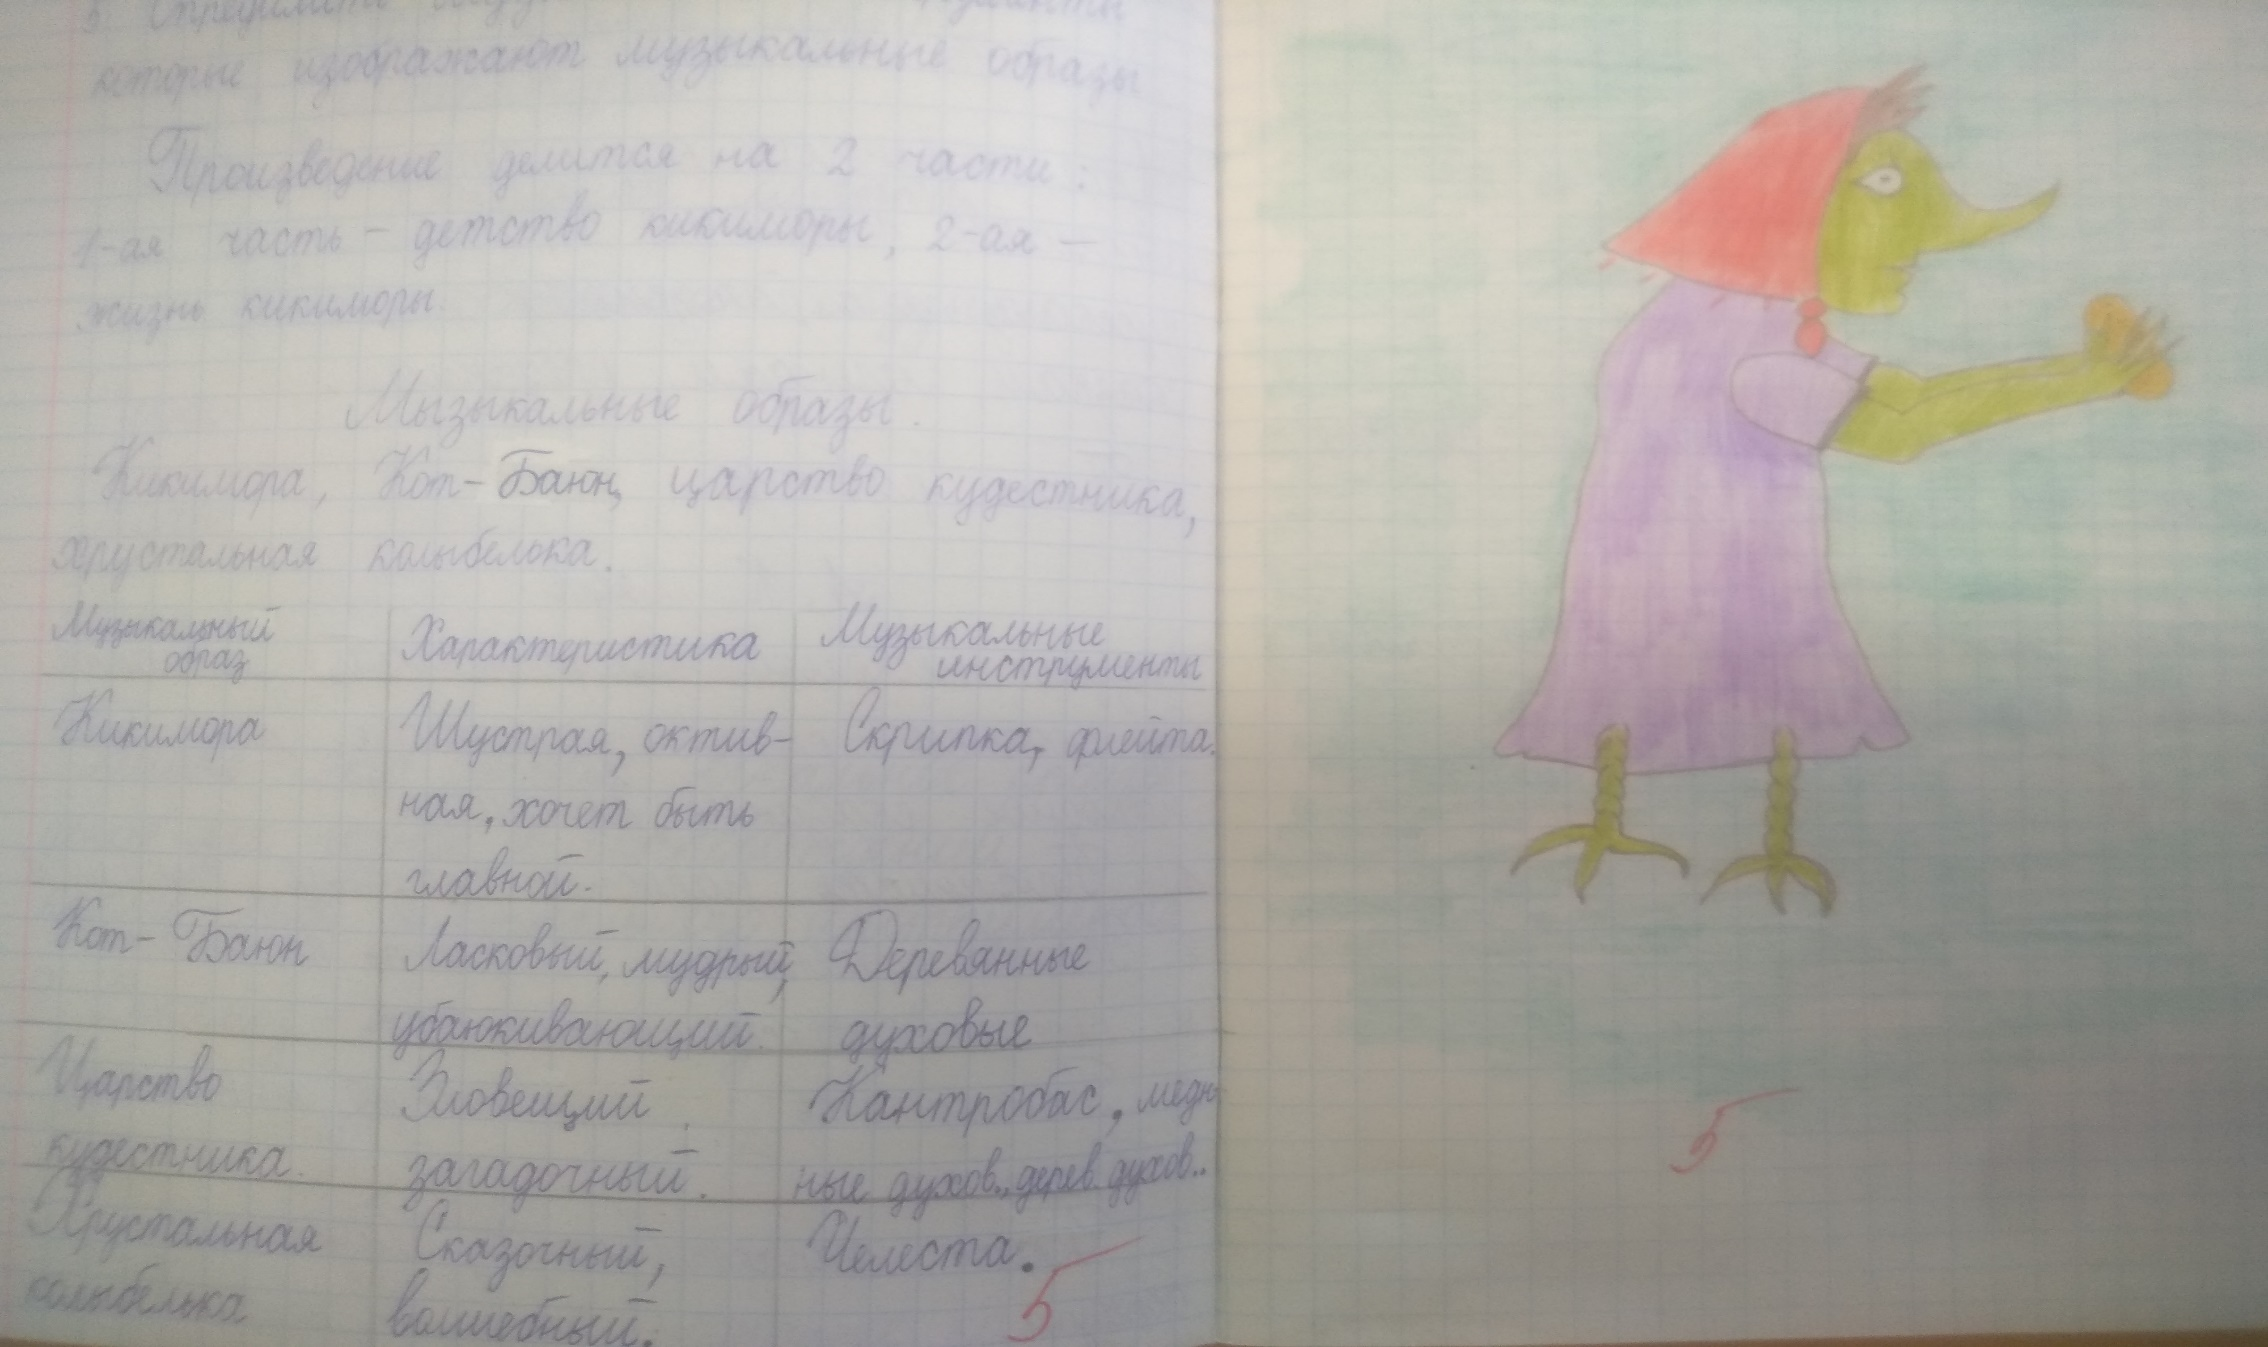 которые изображают музыкальные образы
Произведение делится на 2 части:
1-ая часть – детство кикиморы, 2-ая –
жизнь кикиморы.
Мызыкальные образы.
Кикимора, Кот-Баюн, царство кудестника,
хрустальная колыбелька.
Музыкальный образ
Характеристика
Музыкальные инструменты
Кикимора
Шустрая, октив-
ная, хочет быть
главной.
Скрипка, флейта.
Кот-Баюн
Ласковый, мудрый,
убаюкивающий.
Деревянные
духовые
Царство
кудестника.
Зловещий,
загадочный.
Кантробас, медн
ные духов., дерев. духов..
Хрустальная
колыбелька
Сказочный,
волшебный.
Челеста.
5
5